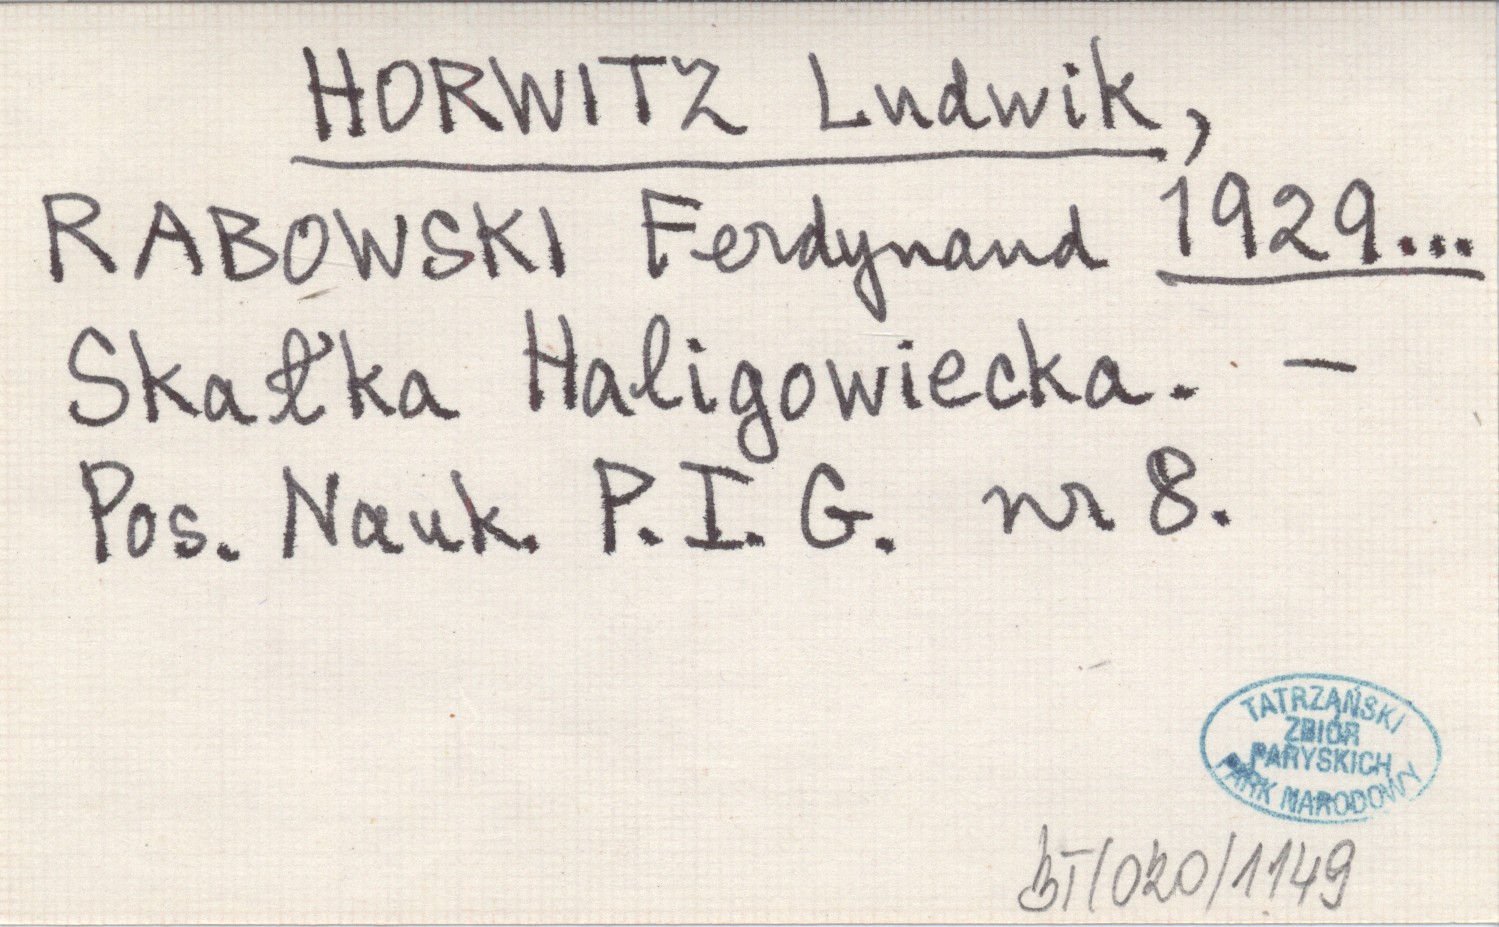 HORWITZ Ludwik,
RABOWSKI Ferdynand 1929...
Skałka Haligowiecka. —
Pos. Nauk. P.I.G. nr 8.
TATRZAŃSKI
ZBIÓR
PARYSKICH
PARK NARODOWY
BT/020/1149